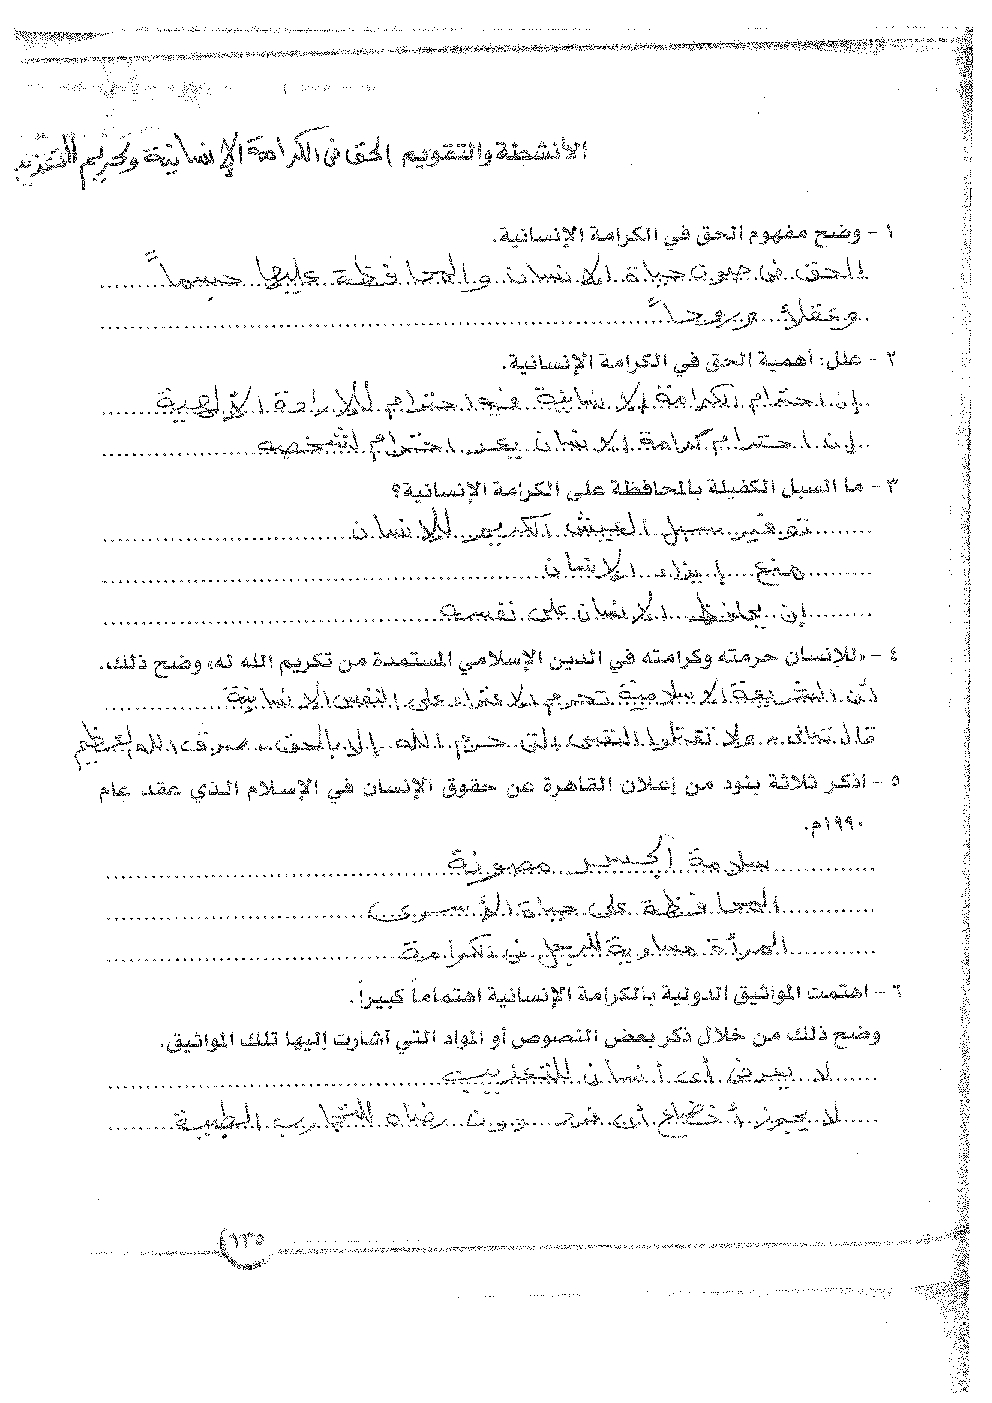 الأنشطة والتقويم الحق في الكرامة الإنسانية وتحريم التعذيب
١ - وضح مفهوم الحق في الكرامة الإنسانية.
الحق في صون حياة الانسان والمحافظة عليها جسماً
وعقلاً وروحاً
٢ - علل: أهمية الحق في الكرامة الإنسانية.
إن احترام الكرامة الانسانية هو احترام للارادة الالهية
إن احترام كرامة الانسان يعد احترام لشخصه
٣ - ما السبل الكفيلة بالمحافظة على الكرامة الإنسانية؟
توفير سبل العيش الكريم للانسان
منع إيذاء الانسان
إن يحافظ الانسان على نفسه
٤ - «للإنسان حرمته وكرامته في الدين الإسلامي المستمدة من تكريم الله له» وضح ذلك.
أن الشريعة الاسلامية تحرم الاعتداء على النفس الانسانية
قال تعالى " ولا تقتلوا النفس التي حرم الله إلا بالحق " صدق الله العظيم
٥ - اذكر ثلاثة بنود من إعلان القاهرة عن حقوق الإنسان في الإسلام الذي عقد عام
١٩٩٠م.
سلامة الجسد مصونة
المحافظة على حياة الأسرى
المرأة مساوية للرجل في الكرامة
٦ - اهتمت المواثيق الدولية بالكرامة الإنسانية اهتماماً كبيراً.
وضح ذلك من خلال ذكر بعض النصوص أو المواد التي أشارت إليها تلك المواثيق.
لا يعرض أى انسان للتعذيب
لا يجوز أخضاع أي فرد دون رضاه للتجارب الطبية
١٣٥